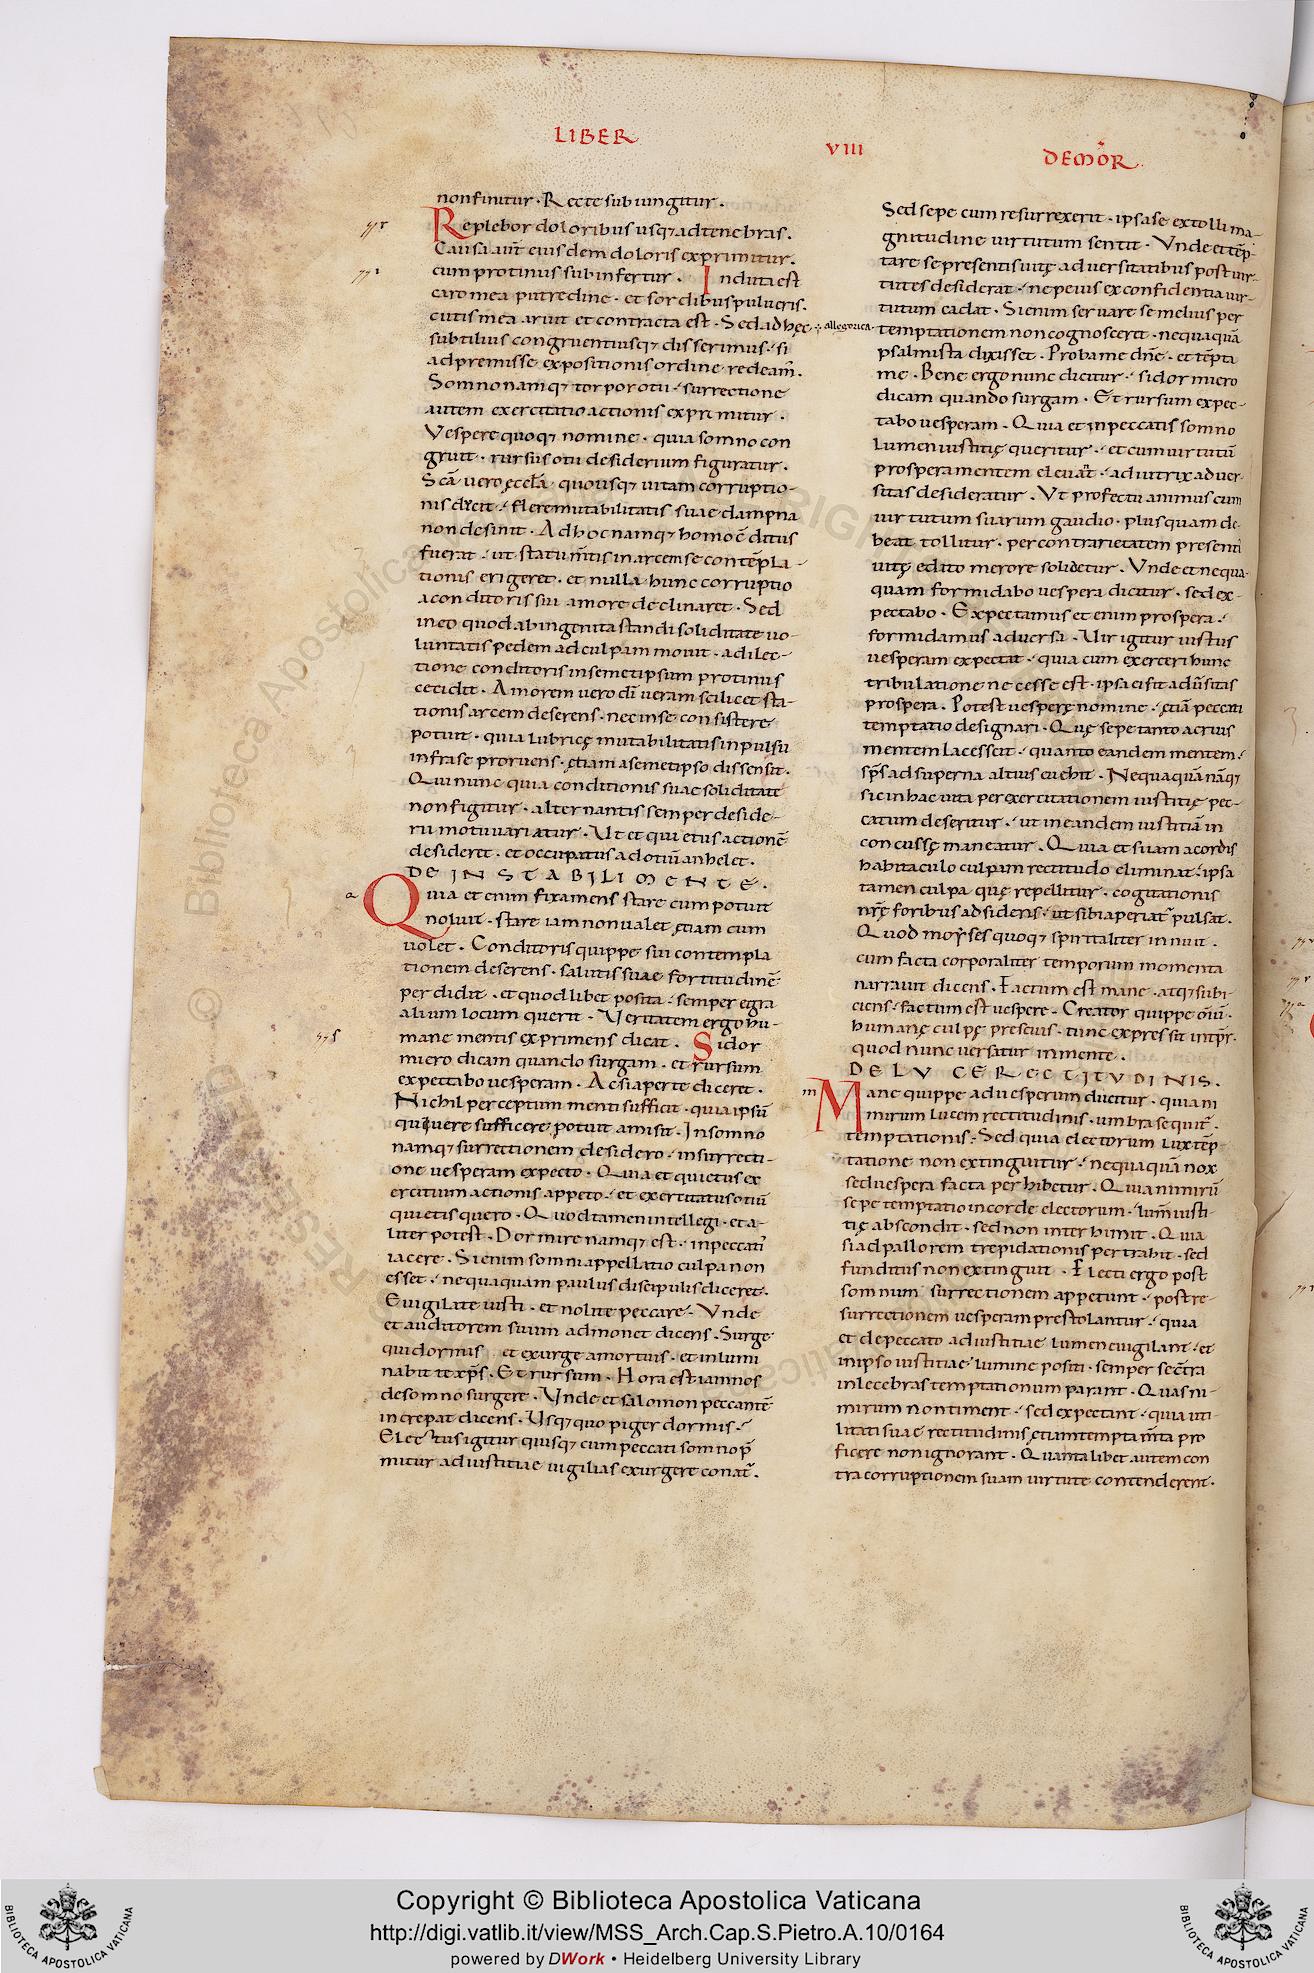 LIBER
VIII
DEMOR̄
non finitur · Recte subiungitur .
Replebor doloribus usq; ad tenebras .
Causa aut̄ eius dem doloris exprimitur .
cum protinus subinfertur . Induta est
caro mea putredine · et sordibus pulueris .
cutis mea aruit et contracta est · Sed ad hęc
subtilius congruentiusq; disserimus · si
ad premisse expositionis ordine redeam̄ .
Somno namq; torpor otii · surrectione
autem exercitatio actionis exprimitur .
Vespere quoq; nomine · quia somno con
gruit · rursus otii desiderium figuratur .
Scā uero ęccƚa quousq; uitam corruptio-
nis ducit · flere mutabilitatis suae dampna
non desinit · Ad hoc namq; homo c̄ditus
fuerat · ut statu m̄tis in arcem se contēpla-
tionis erigeret · et nulla hunc corruptio
a conditoris sui amore declinaret · Sed
in eo quod ab ingenita standi soliditate uo-
luntatis pedem ad culpam mouit · a dilec-
tione conditoris in semet ipsum protinus
cecidit · Amorem uero dī ueram scilicet sta-
tionis arcem deserens · nec in se consistere
potuit · quia lubricę mutabilitatis inpulsu
infra se proruens · ętiam a semetipso dissensit .
Qui nunc quia conditionis suae soliditate
non figitur · alternantis semper deside-
rii motu uariatur · Ut et quietus actionē
desideret · et occupatus ad otiū anhelet .
DE INSTABILI MENTE .
a
Quia et enim fixa mens stare cum potuit
noluit · stare iam non ualet ętiam cum
uolet . Conditoris quippe sui contempla
tionem deserens · salutis suae fortitudinē
perdidit · et quodlibet posita · semper egra
alium locum querit · Veritatem ergo hu-
mane mentis exprimens dicat . Si dor
miero dicam quando surgam · et rursum
expectabo uesperam · Ac si aperte diceret .
Nichil perceptum menti sufficit · quia ipsū
qui uere sufficere potuit amisit · In somno
namq; surrectionem desidero · in surrecti-
one uesperam expecto · Quia et quietus ex
ercitium actionis appeto · et exercitatus otiū
quietis quero · Quod tamen intellegi · et a-
liter potest · Dormire namq; est · in peccati'
iacere · Si enim somni appellatio culpa non
esset · nequaquam paulus discipulis diceret .
Euigilate iusti · et nolite peccare · Vnde
et auditorem suum admonet dicens · Surge
qui dormis et exurge a mortuis · et inlumi
nabit te xp̄s · Et rursum · Hora est iam nos
de somno surgere · Vnde et salomon peccantē
increpat dicens · Usq; quo piger dormis ·
Electus igitur quisq; cum peccati somno p̄
mitur ad iustitiae uigilias exurgere conat̄ .
allegorica
Sed sepe cum resurrexerit · ip̄sa se extolli ma-
gnitudine uirtutum sentit · Vnde et tēp-
tare se presentis uitę aduersitatibus post uir-
tutes desiderat · ne peius ex confidentia uir-
tutum cadat · Si enim seruare se melius per
temptationem non cognosceret · nequaquā
psalmista dixisset · Proba me dn̄e · et tēpta
me · Bene ergo nunc dicitur · si dormiero
dicam quando surgam · Et rursum expec-
tabo uesperam . Quia et in peccatis somno
lumen iustitię queritur · et cum uirtutū
prospera mentem eleuāt · adiutrix aduer-
sitas desideratur . Vt profectu animus cum
uirtutum suarum gaudio · plus quam de-
beat tollitur · per contrarietatem presenti'
uitę edito merore solidetur . Vnde et nequa-
quam formidabo uespera dicitur · sed ex-
pectabo · Expectamus et enim prospera ·
formidamus aduersa · Uir igitur iustus
uesperam expectat · quia cum exerceri hunc
tribulatione necesse est · ipsa ei fit aduersitas
prospera . Potest uesperę nomine · ętiā peccati
temptatio designari . Quę sepe tanto acrius
mentem lacessit · quanto eandem mentem
sp̄s ad superna altius euehit · Nequaquā nāq;
sic in hac uita per exercitationem iustitię pec-
catum deseritur · ut in eandem iustitiā in
concussę maneatur . Quia et si iam a cordis
habitaculo culpam rectitudo eliminat · ipsa
tamen culpa quę repellitur · cogitationis
nr̄ę foribus adsidens · ut sibi aperiat̄ pulsat .
Quod moyses quoq; spiritaliter innuit .
cum facta corporaliter temporum momenta
narrauit dicens . Factum est mane · atq; subi-
ciens · factum est uespere · Creator quippe om̄iū ·
humanę culpę prescius · tunc expressit int̄pr̄ .
quod nunc uersatur in mente .
DE LUCE RECTITUDINIS .
m
Mane quippe ad uesperum ducitur · quia ni
mirum lucem rectitudinis · umbra sequit̄ .
temptationis · Sed quia electorum lux tēp-
tatione non extinguitur · nequaquā nox
sed uespera facta perhibetur . Quia nimirū
sepe temptatio in corde electorum · lum̄ iusti-
tię abscondit · sed non interhimit · Quia
si ad pallorem trepidationis pertrahit · sed
funditus non extinguit · Electi ergo post
somnum surrectionem appetunt · post re-
surrectionem uesperam prestolantur · quia
et de peccato ad iustitiae lumen euigilant · et
in ipso iustitiae lumine positi · semper se cōtra
inlecebras temptationum parant . Quas ni-
mirum non timent · sed expectant · quia uti-
litati suae rectitudinis ętiam temptam̄ta pro
ficere non ignorant . Quantalibet autem con
tra corruptionem suam uirtute contenderent .
Copyright © Biblioteca Apostolica Vaticana
http://digi.vatlib.it/view/MSS_Arch.Cap.S.Pietro.A.10/0164
powered by DWork • Heidelberg University Library
BIBLIOTECA APOSTOLICA VATICANA
BIBLIOTECA APOSTOLICA VATICANA